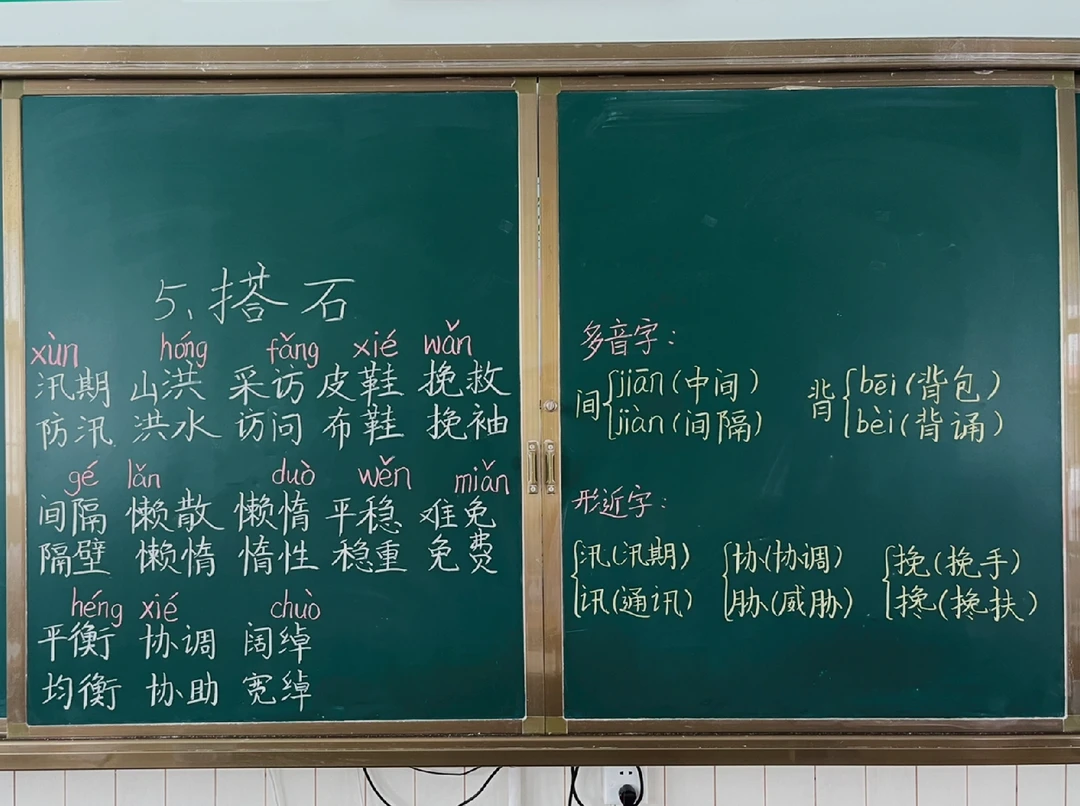 5、搭石
xùn hóng fǎng xié wǎn
汛期 山洪 采访 皮鞋 挽救
防汛 洪水 访问 布鞋 挽袖
gé lǎn duò wěn miǎn
间隔 懒散 懒惰 平稳 难免
隔壁 懒惰 惰性 稳重 免费
héng xié chuò
平衡 协调 阔绰
均衡 协助 宽绰
多音字：
间 jiān(中间) 背 bēi(背包)
jiàn(间隔) bèi(背诵)
形近字：
汛(汛期) 协(协调) 挽(挽手)
讯(通讯) 胁(威胁) 搀(搀扶)